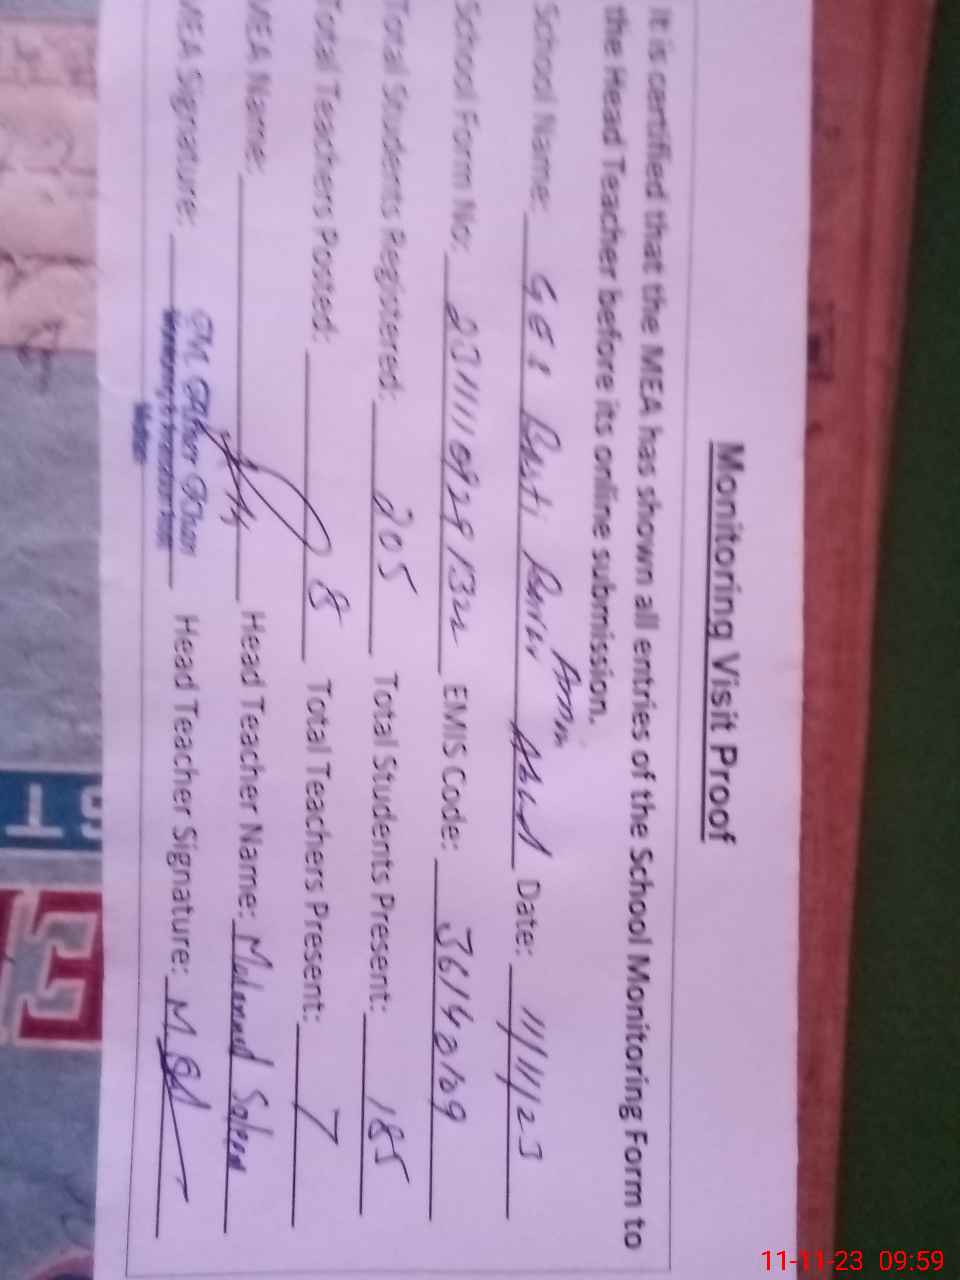 Monitoring Visit Proof
It is certified that the MEA has shown all entries of the School Monitoring Form to
the Head Teacher before its online submission.
School Name: GES Basti Amin Date: 11/11/23
School Form No: EMIS Code:
Total Students Registered: 205 Total Students Present: 185
Total Teachers Posted: 8 Total Teachers Present: 7
MEA Name: Head Teacher Name: Muhammad Saleem
MEA Signature: Head Teacher Signature:
ST
E
11-11-23 09:59